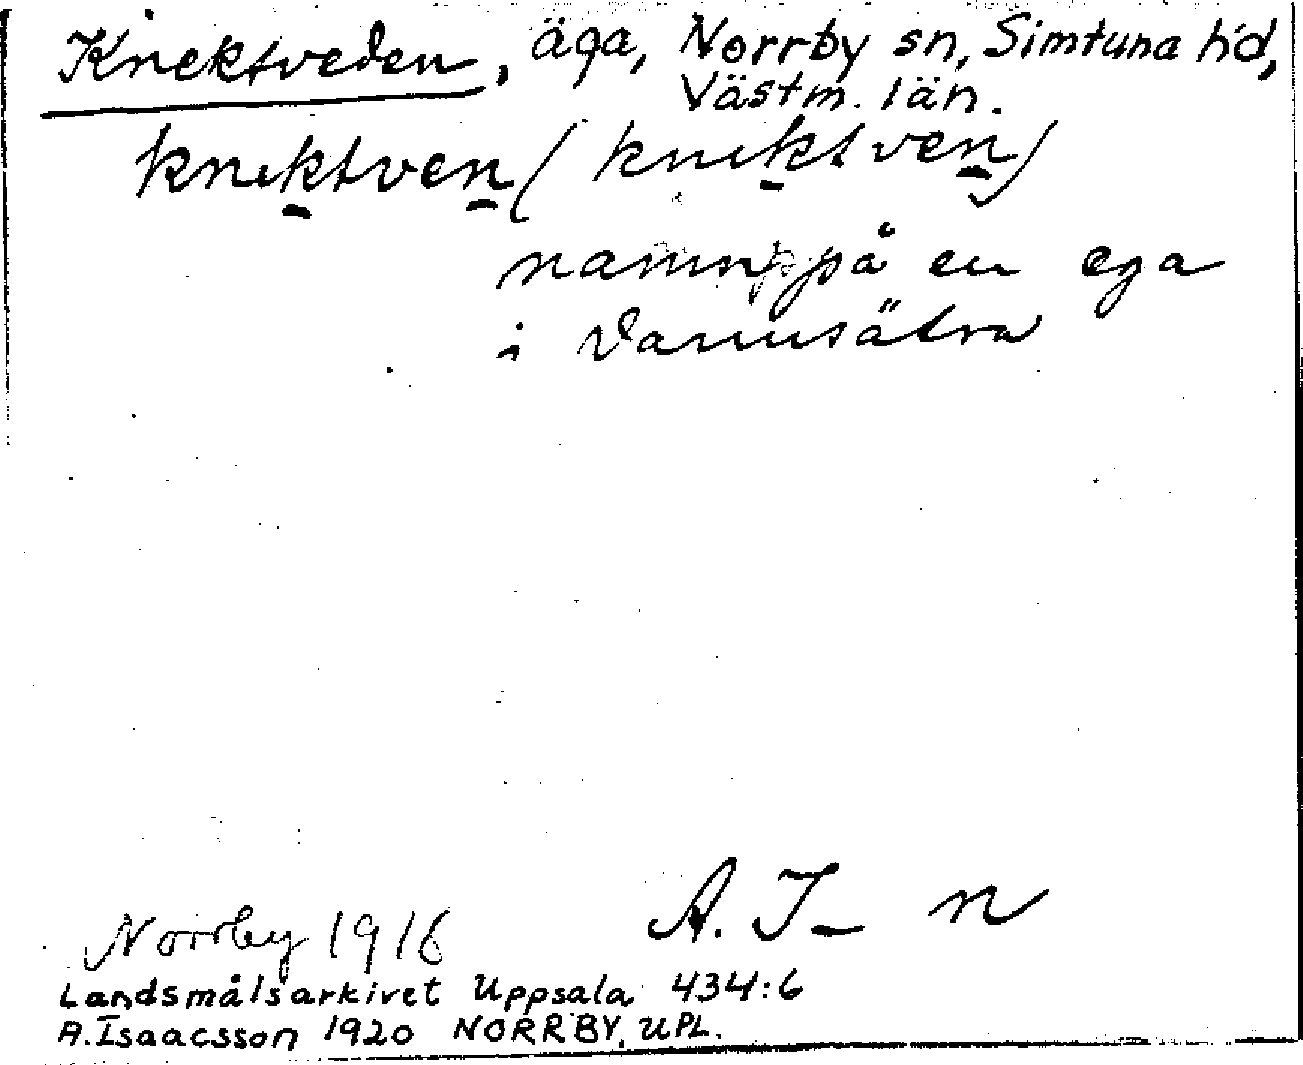 Knektveden, äga, Norrby sn, Simtuna hd,
Västm. län.
knektven (knektven)
namn på en ega
i Vannsätra
A. I–n
Norrby 1916
Landsmålsarkivet Uppsala 434:6
A. Isaacsson 1920 NORRBY, UPL.